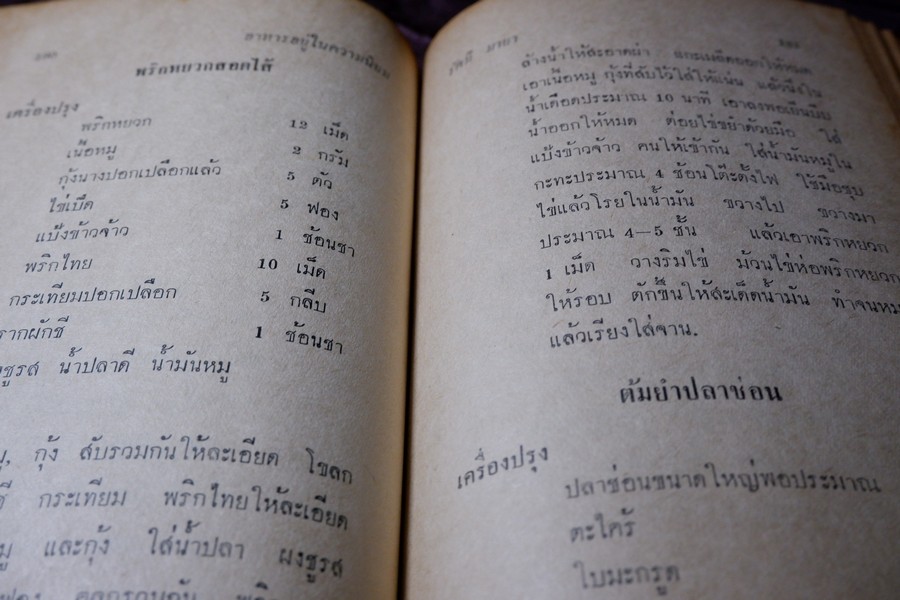 อาหารอยู่ในความนิยม
พริกหยวกสอดไส้
เครื่องปรุง
พริกหยวก 12 เม็ด
เนื้อหมู 2 กรัม
กุ้งนางปอกเปลือกแล้ว 5 ตัว
ไข่เป็ด 5 ฟอง
แป้งข้าวจ้าว 1 ช้อนชา
พริกไทย 10 เม็ด
กระเทียมปอกเปลือก 5 กลีบ
รากผักชี 1 ช้อนชา
ชูรส น้ำปลาดี น้ำมันหมู
กุ้ง สับรวมกันให้ละเอียด โขลก
ชี กระเทียม พริกไทยให้ละเอียด
มู และกุ้ง ใส่น้ำปลา ผงชูรส
ล้างน้ำให้สะอาดผ่า แกะเมล็ดออกให้หมด
เอาเนื้อหมู กุ้งที่สับไว้ใส่ให้แน่น แล้วนึ่งใน
น้ำเดือดประมาณ 10 นาที เอาลงพอเย็นบีบ
น้ำออกให้หมด ต่อยไข่ขยำด้วยมือ ใส่
แป้งข้าวจ้าว คนให้เข้ากัน ใส่น้ำมันหมูใน
กะทะประมาณ 4 ช้อนโต๊ะตั้งไฟ ใช้มือชุบ
ไข่แล้วโรยในน้ำมัน ขวางไป ขวางมา
ประมาณ 4—5 ชั้น แล้วเอาพริกหยวก
1 เม็ด วางริมไข่ ม้วนไข่ห่อพริกหยวก
ให้รอบ ตักขึ้นให้สะเด็ดน้ำมัน ทำจนหม
แล้วเรียงใส่จาน.
ต้มยำปลาช่อน
เครื่องปรุง
ปลาช่อนขนาดใหญ่พอประมาณ
ตะไคร้
ใบมะกรูด